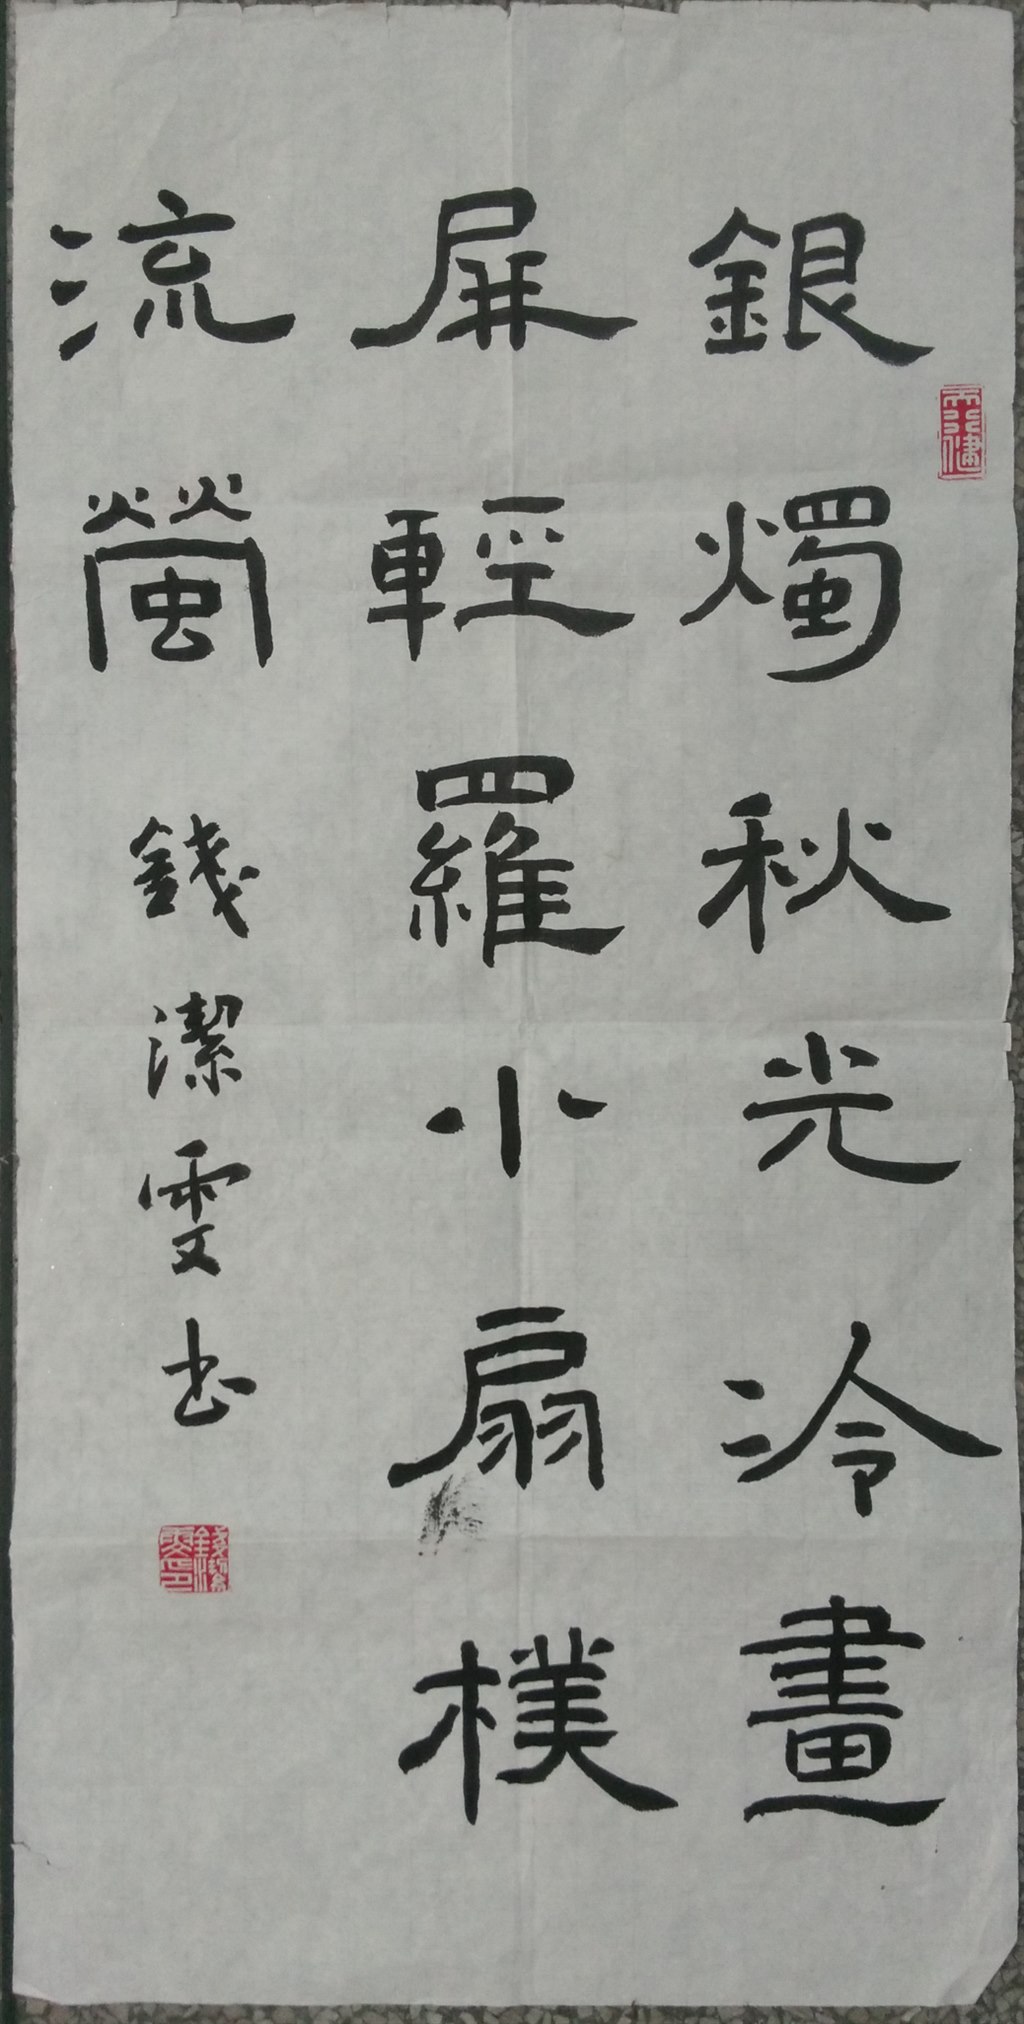 銀燭秋光冷畫
屏輕羅小扇樸
流螢
錢潔雯书